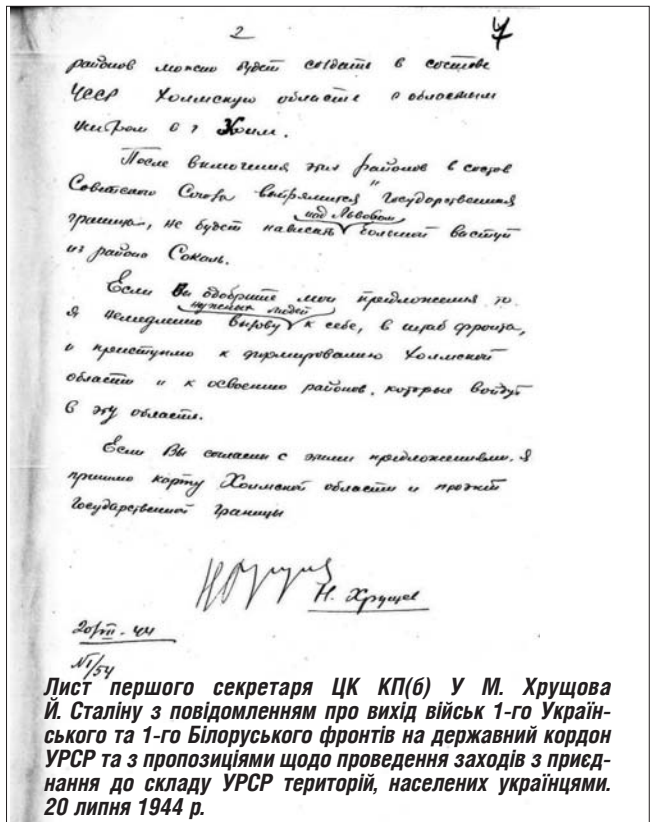 2
районов можно будет создать в составе
УССР Холмскую область с областным
центром в г Холм.
После включения этих районов в состав
Советского Союза выпрямится Государственная
граница, не будет нависать над Львовом большой выступ
из района Сокаль.
Если Вы одобрите мои предложения то
я немедленно вызову нужных людей к себе, в штаб фронта,
и приступлю к формированию Холмской
области и к освоению районов, которые войдут
в эту область.
Если Вы согласны с этими предложениями. Я
пришлю карту Холмской области и проэкт
Государственной границы
Н. Хрущев
20/VII-44
№1/54
Лист першого секретаря ЦК КП(б) У М. Хрущова
Й. Сталіну з повідомленням про вихід військ 1-го Україн-
ського та 1-го Білоруського фронтів на державний кордон
УРСР та з пропозиціями щодо проведення заходів з приєд-
нання до складу УРСР територій, населених українцями.
20 липня 1944 р.